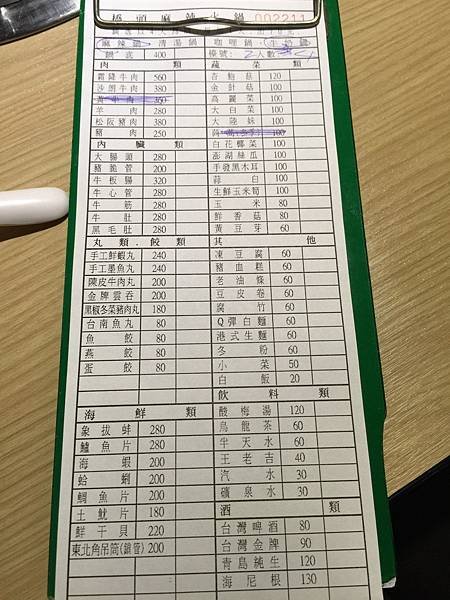 橋頭麻辣火鍋 002211
麻辣鍋 清湯鍋 咖哩鍋
鍋底 400 人數
肉類 蔬菜類
霜降牛肉 560 杏鮑菇 120
沙朗牛肉 380 金針菇 100
黃牛肉 360 高麗菜 100
羊肉 280 大白菜 100
松阪豬肉 380 大陸妹 100
豬肉 250 茼蒿(冬季) 100
內臟類 白花椰菜 100
大腸頭 280 澎湖絲瓜 100
豬脆管 200 手發黑木耳 100
牛板腸 320 蒜白 100
牛心管 280 生鮮玉米筍 100
牛筋 280 玉米 80
牛肚 280 鮮香菇 80
黑毛肚 280 黃豆芽 60
丸類.餃類 其他
手工鮮蝦丸 240 凍豆腐 60
手工墨魚丸 240 豬血糕 60
陳皮牛肉丸 200 老油條 60
金牌雲吞 200 豆皮卷 60
黑椒多菜豬肉丸 180 腐竹 60
台南魚丸 80 Q彈白麵 60
魚餃 80 港式生麵 60
燕餃 80 冬粉 60
蛋餃 80 小菜 50
白飯 20
海鮮類 飲料類
象拔蚌 280 酸梅湯 120
鱸魚片 280 烏龍茶 60
海蝦 200 半天水 60
蛤蜊 200 王老吉 40
鯛魚片 200 汽水 30
土魷片 180 礦泉水 30
鮮干貝 220 酒類
東北角吊筒(鎖管) 200 台灣啤酒 80
台灣金牌 90
青島純生 120
海尼根 130